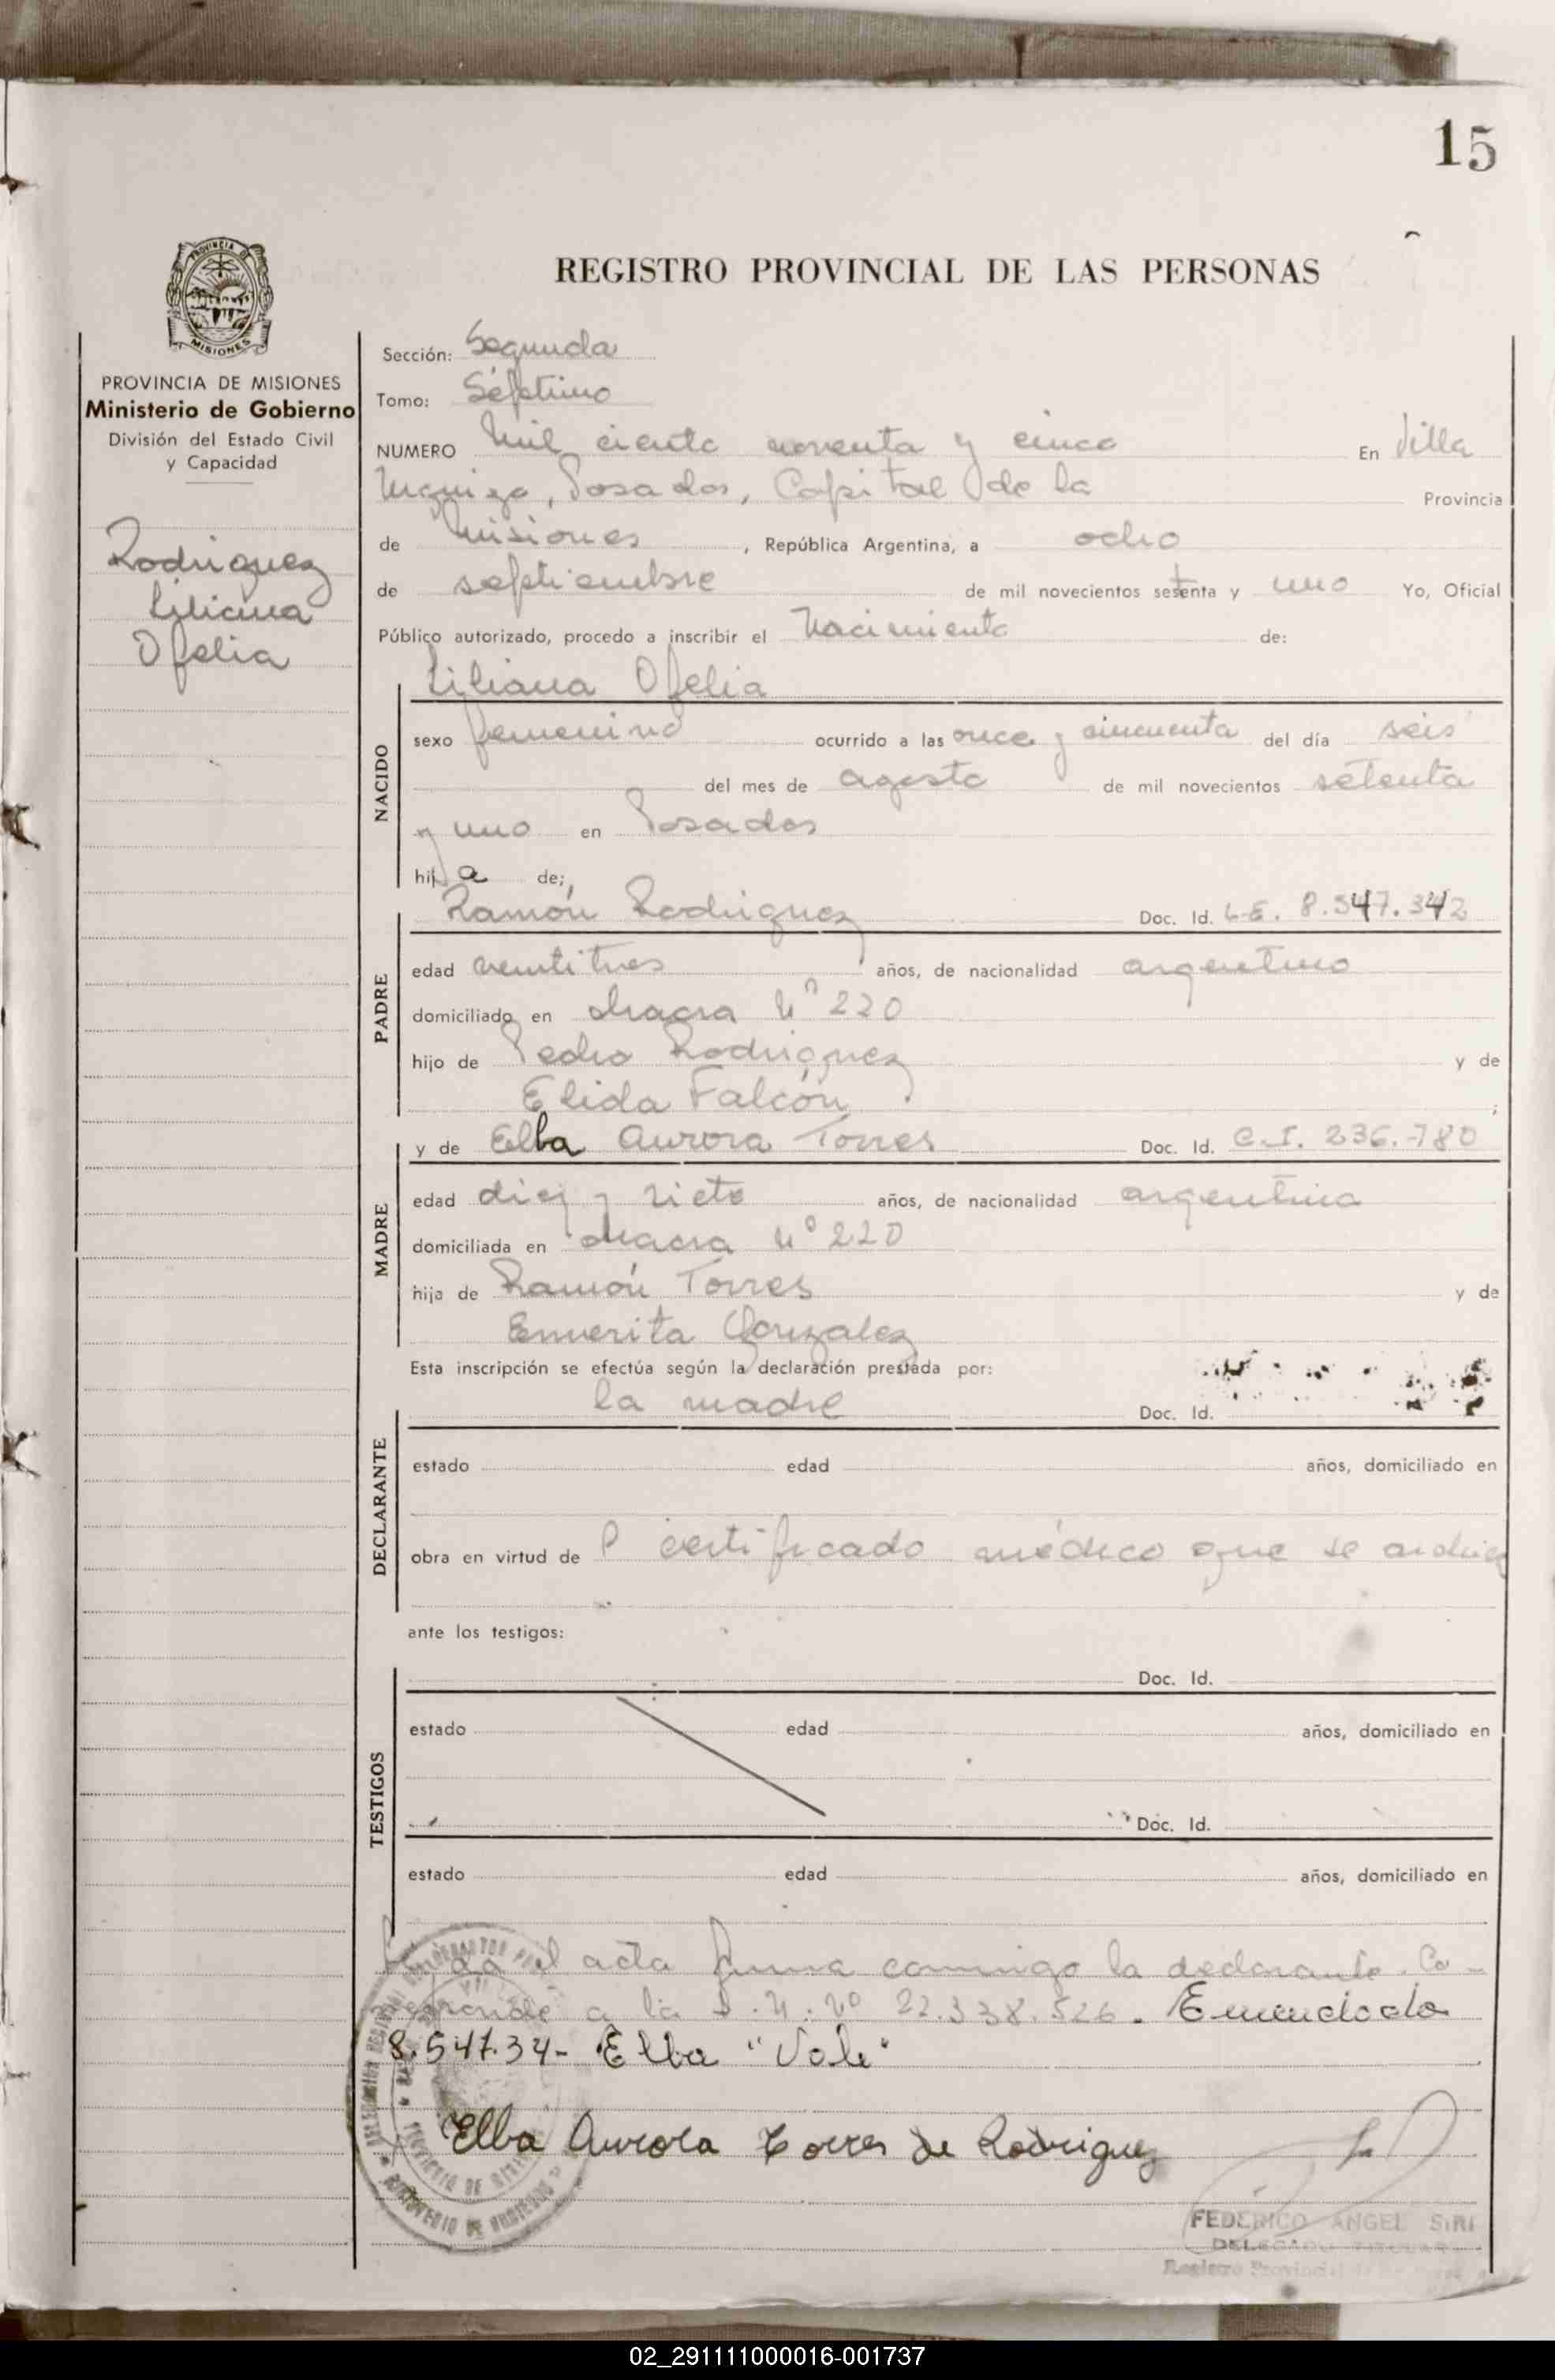 15
PROVINCIA DE
MISIONES
REGISTRO PROVINCIAL DE LAS PERSONAS
PROVINCIA DE MISIONES
Ministerio de Gobierno
División del Estado Civil
y Capacidad
Rodriguez
Liliana
Ofelia
Sección: Segunda
Tomo: Séptimo
NUMERO Mil ciento noventa y cinco En Villa
Urquiza, Posadas, Capital de la Provincia
de Misiones, República Argentina, a ocho
de septiembre de mil novecientos setenta y uno Yo, Oficial
Público autorizado, procedo a inscribir el Nacimiento de:
Liliana Ofelia
NACIDO
sexo femenino ocurrido a las once y cincuenta del día seis
del mes de agosto de mil novecientos setenta
y uno en Posadas
hija de:
Ramón Rodriguez Doc. Id. L.E. 8.547.342
PADRE
edad veintitres años, de nacionalidad argentino
domiciliado en chacra Nº 220
hijo de Pedro Rodriguez y de
Elida Falcón ;
y de Elba Aurora Torres Doc. Id. C.I. 236.780
MADRE
edad diez y siete años, de nacionalidad argentina
domiciliada en chacra Nº 220
hija de Ramón Torres y de
Emerita Gonzalez
Esta inscripción se efectúa según la declaración prestada por:
la madre Doc. Id.
DECLARANTE
estado edad años, domiciliado en
obra en virtud de certificado médico que se archiva
ante los testigos:
Doc. Id.
TESTIGOS
estado edad años, domiciliado en
Doc. Id.
estado edad años, domiciliado en
el acta firma conmigo la declarante. Co-
rresponde a la D.N. Nº 22.338.526. Enmendado
8.547.34- Elba "Vale"
Elba Aurora Torres de Rodriguez
FEDERICO ANGEL SIRI
DELEGADO TITULAR
Registro Provincial de las
02_291111000016-001737